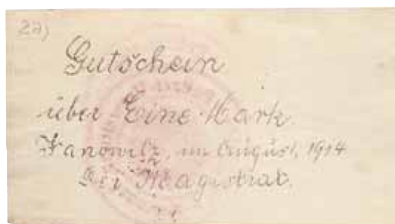 22)
Gutschein
über Eine Mark
Janowitz, im August, 1914
Der Magistrat.